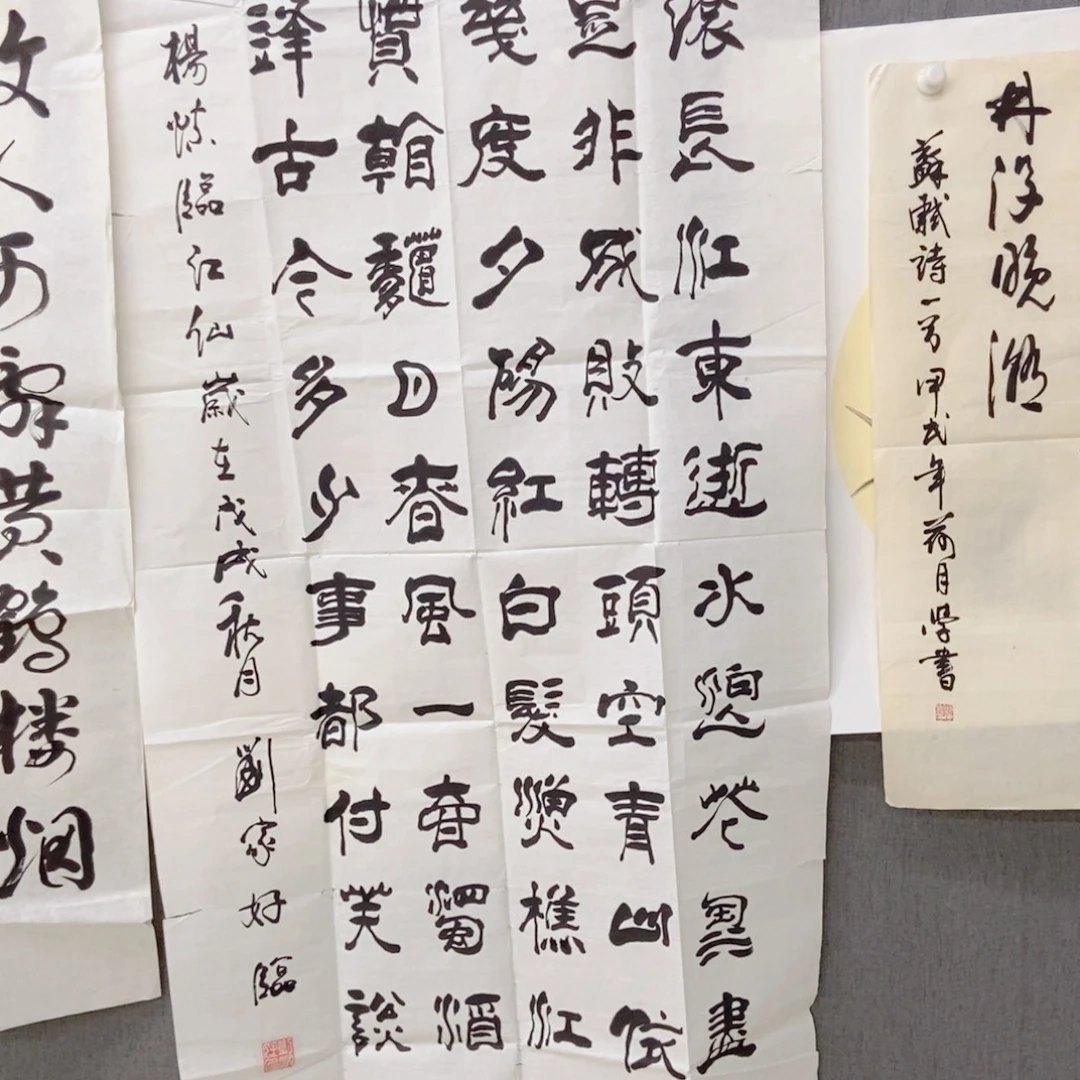 浮晚
蘇軾詩一首 甲戌年荷月學書
滾長江東逝水浪花淘盡
是非成敗轉頭空青山依
幾度夕陽紅白髮漁樵江
慣看龝月春風一壺濁酒
逢古今多少事都付笑談
楊慎臨江仙 歲在戊戌秋月 劉家好臨
故人西辞黄鶴楼烟